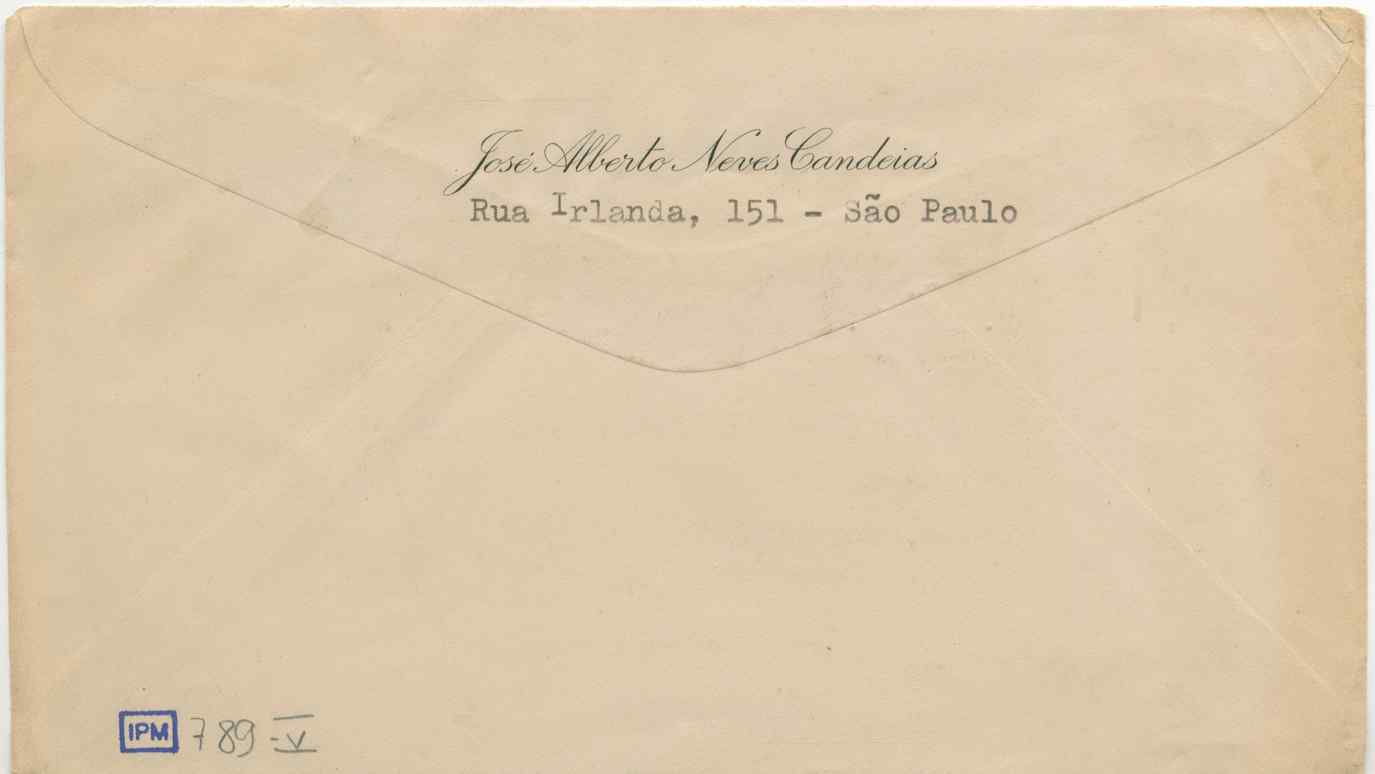 José Alberto Neves Candeias
Rua Irlanda, 151 - São Paulo
IPM 789-V